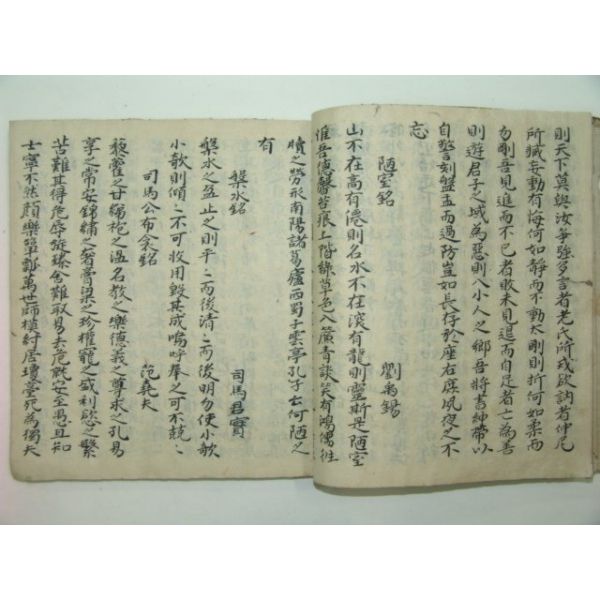 則天下莫與汝爭強多言者老氏所戒欲訥者仲尼
所臧妄動有悔何如靜而不動太剛則折何如柔而
勿剛吾見進而不已者敗未見退而自足者亡為善
則遊君子之域為惡則入小人之鄉吾將書紳帶以
自警刻盤盂而過防豈如長存於座右庶夙夜之不
忘
陋室銘 劉禹錫
山不在高有僊則名水不在深有龍則靈斯是陋室
惟吾德馨苔痕上階綠草色入簾青談笑有鴻儒徃
牘之勞形南陽諸葛廬西蜀子雲亭孔子云何陋之
有
槃水銘 司馬君實
槃水之盈止之則平平而後清清而後明勿使小欹
小欹則傾傾不可收用毀其成嗚呼奉之可不兢兢
司馬公布衾銘 范堯夫
藜藿之甘綈袍之溫名敎之樂德義之尊求之孔易
享之常安錦繡之奢膏粱之珍權寵之盛利欲之繁
苦難其得危辱旋臻舍難取易去危就安至愚且知
士寧不然顏樂簞瓢萬世師模紂居瓊臺死為獨夫